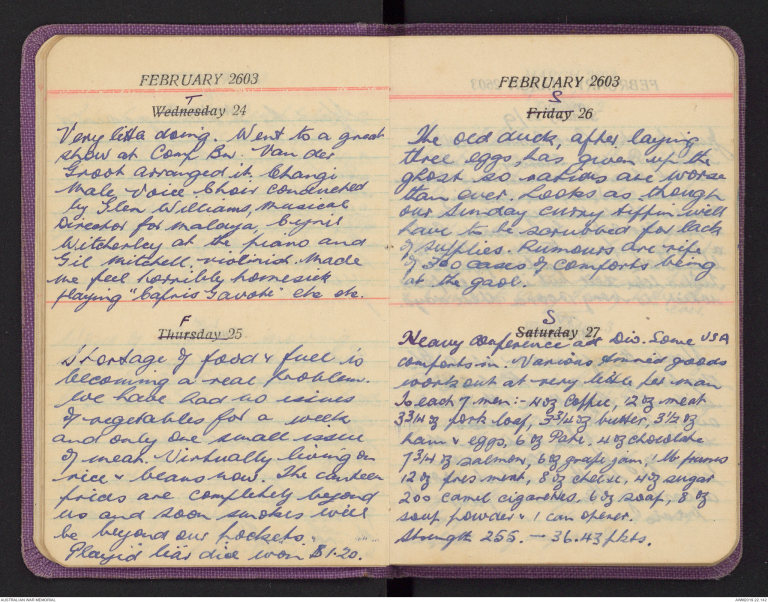 FEBRUARY 2603
T
Wednesday 24
Very litta doing. Went to a great
show at Conf Bn. Van der
Groot arranged it. Changi
Male Voice Choir conducted
by Glen Williams, Musical
Director for Malaya, Cyril
Witcherley at the piano and
Gil Mitchell violinist. Made
me feel horribly homesick
playing "Capris Gavote" etc etc.
F
Thursday 25
Shortage of food & fuel is
becoming a real problem.
We have had no issues
of vegetables for a week
and only one small issue
of meat. Virtually living on
rice & beans now. The canteen
prices are completely beyond
us and soon smokes will
be beyond our pockets.
Played liar dice won $1.20.
FEBRUARY 2603
S
Friday 26
The old duck, after laying
three eggs, has given up the
ghost so rations are worse
than ever. Looks as though
our Sunday curry tiffin will
have to be scrubbed for lack
of supplies. Rumours are rife
of 300 cases of comforts being
at the gaol.
S
Saturday 27
Heavy conference at Div. Some USA
comforts in. Various tinned goods
works out at very little per man
To each 7 men:- 4 oz Coffee, 12 oz meat
3 3/4 oz pork loaf, 3 3/4 oz butter, 3 1/2 oz
ham & eggs, 6 oz Pate. 4 oz chocolate
7 3/4 oz salmon, 6 oz grape jam, 1 lb prunes
12 oz pres meat, 8 oz cheese, 4 oz sugar
200 camel cigarettes. 6 oz soap, 8 oz
soup powder & 1 can opener.
Strength 255. — 36.43 pkts.
AUSTRALIAN WAR MEMORIAL